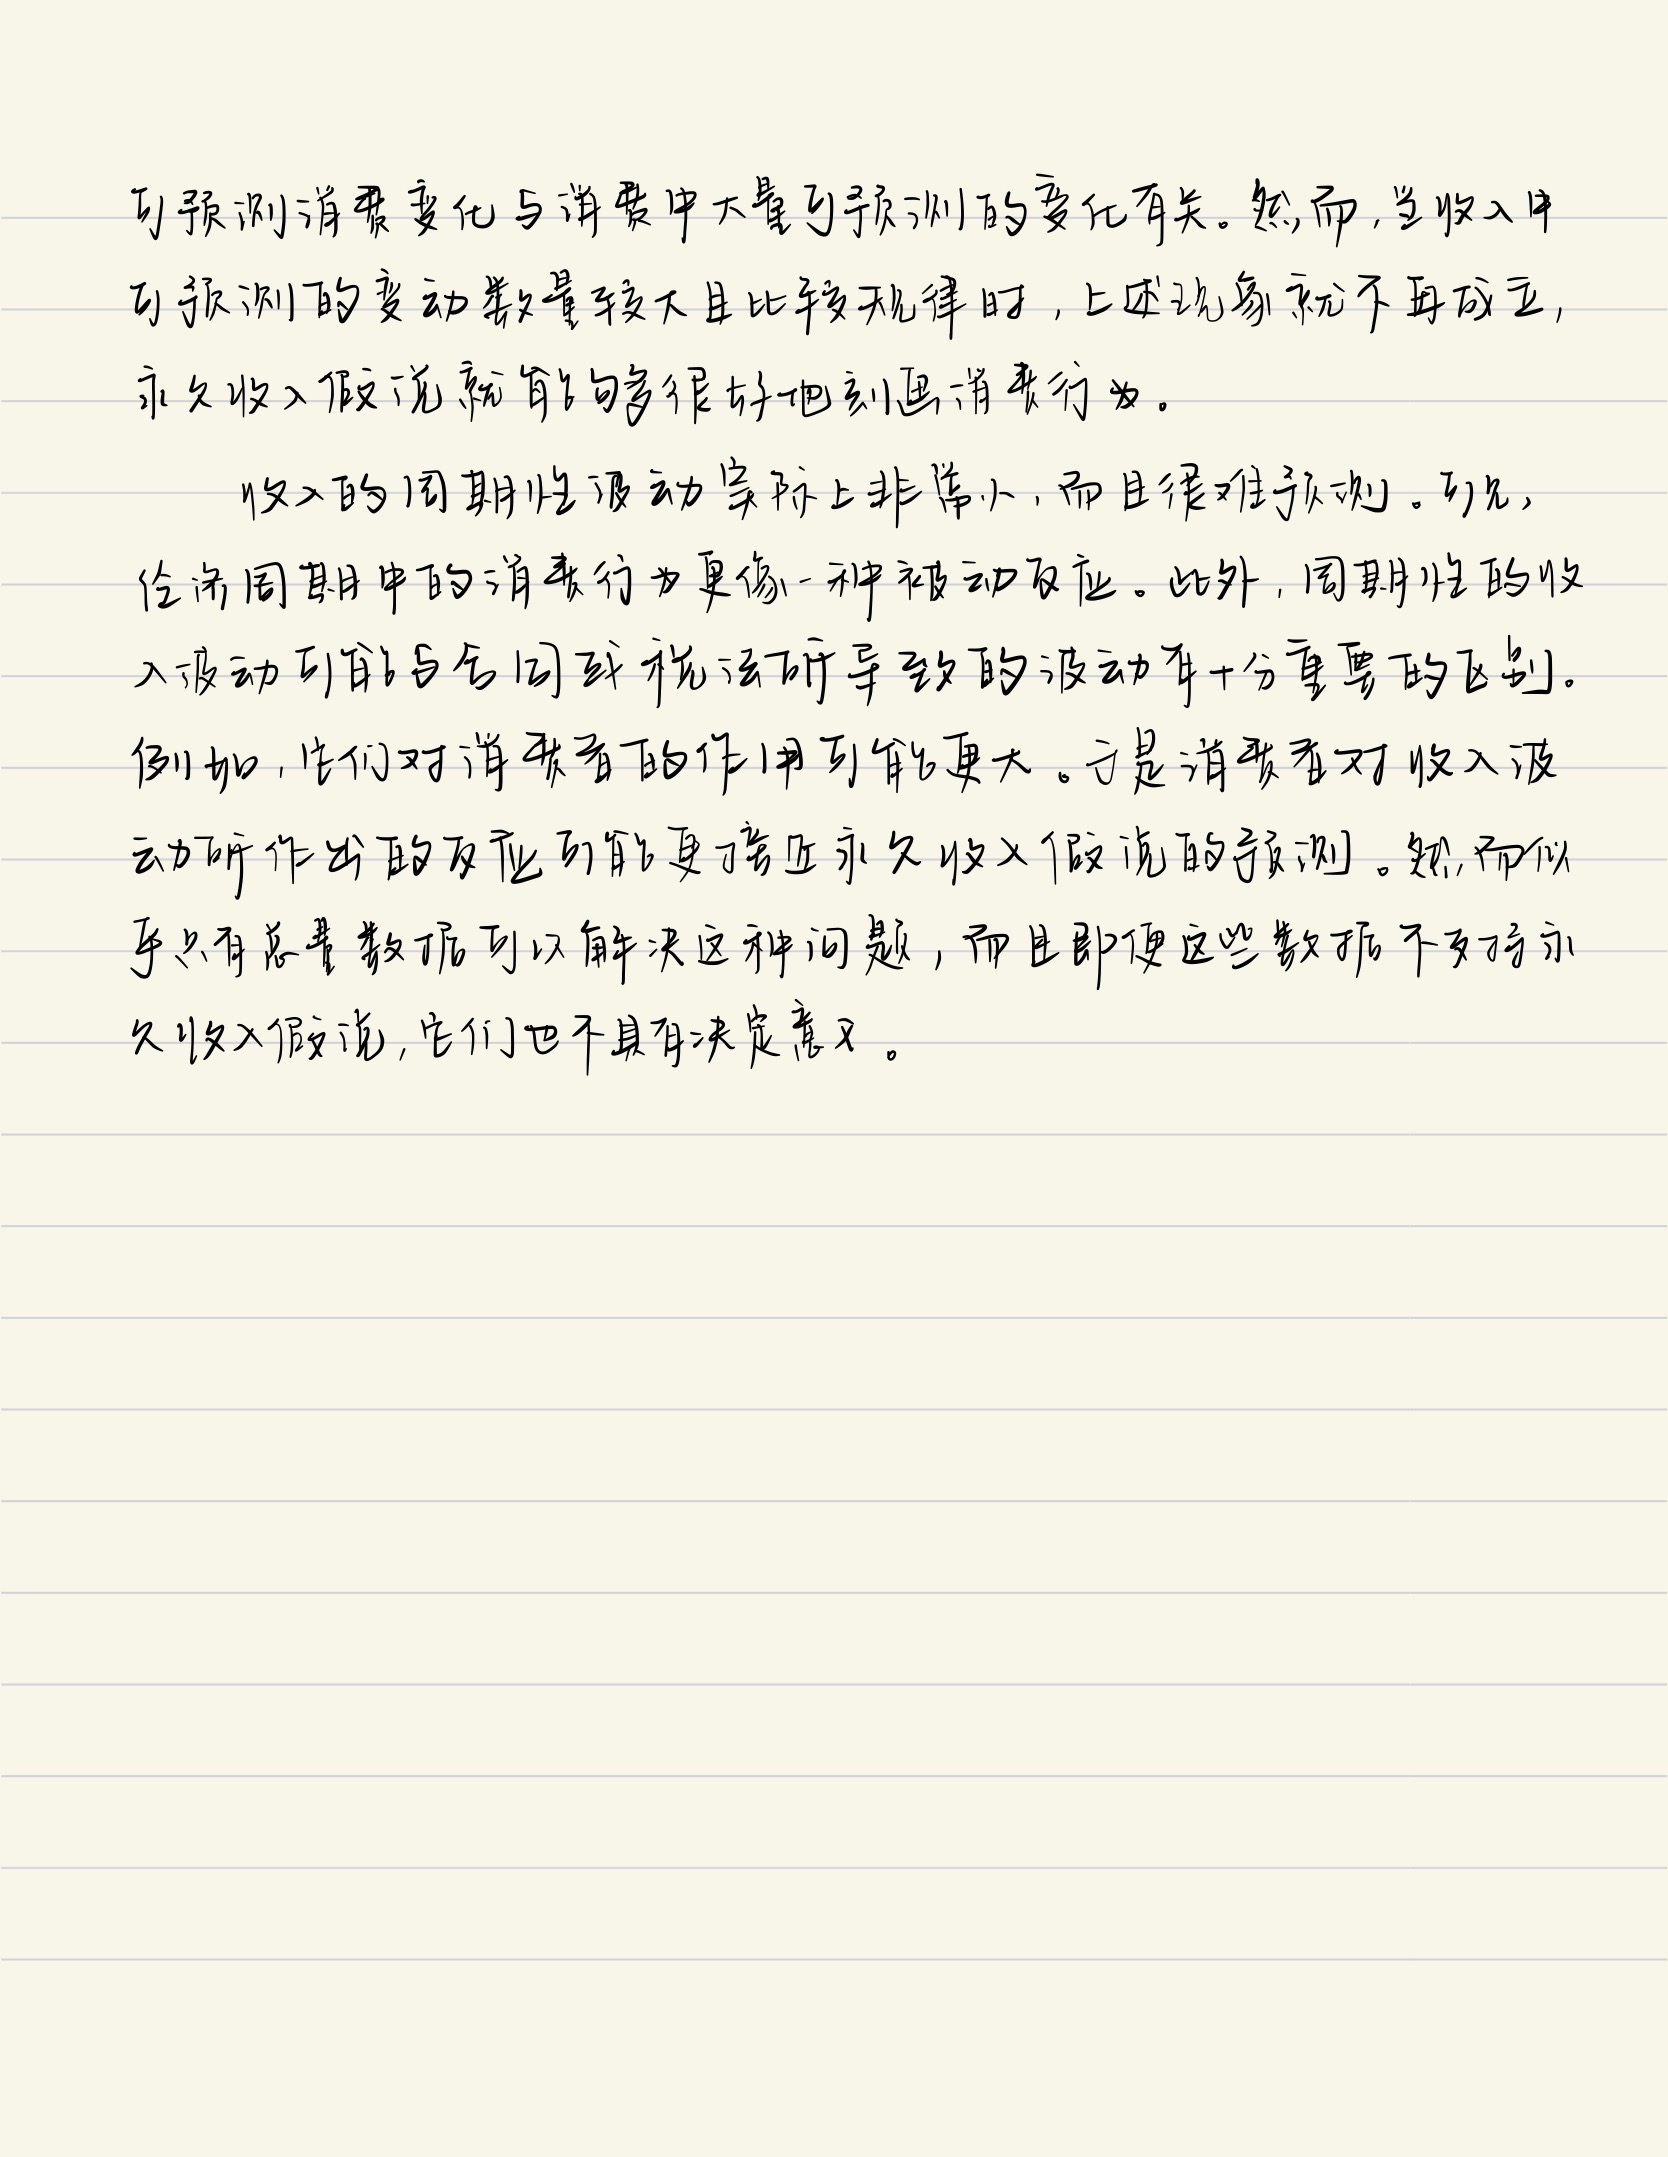 可预测消费变化与消费中大量可预测的变化有关。然而,当收入中
可预测的变动数量较大且比较规律时,上述现象就不再成立,
永久收入假说就能够多很好地刻画消费行为。
收入的周期性波动实际上非常小,而且很难预测。可见,
经济周期中的消费行为更像一种被动反应。此外,周期性的收
入波动可能与合同或税法所导致的波动有十分重要的区别。
例如,它们对消费者的作用可能更大。于是消费者对收入波
动所作出的反应可能更接近永久收入假说的预测。然而似
乎只有总量数据可以解决这种问题,而且即便这些数据不支持永
久收入假说,它们也不具有决定意义。